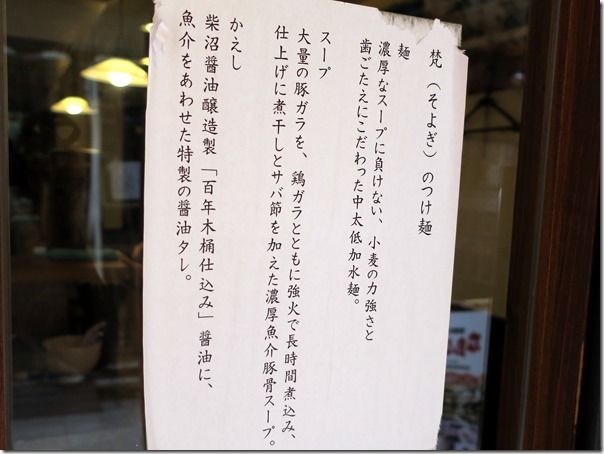 梵（そよぎ）のつけ麺
麺
濃厚なスープに負けない、小麦の力強さと
歯ごたえにこだわった中太低加水麺。
スープ
大量の豚ガラを、鶏ガラとともに強火で長時間煮込み、
仕上げに煮干しとサバ節を加えた濃厚魚介豚骨スープ。
かえし
柴沼醤油醸造製「百年木桶仕込み」醤油に、
魚介をあわせた特製の醤油タレ。